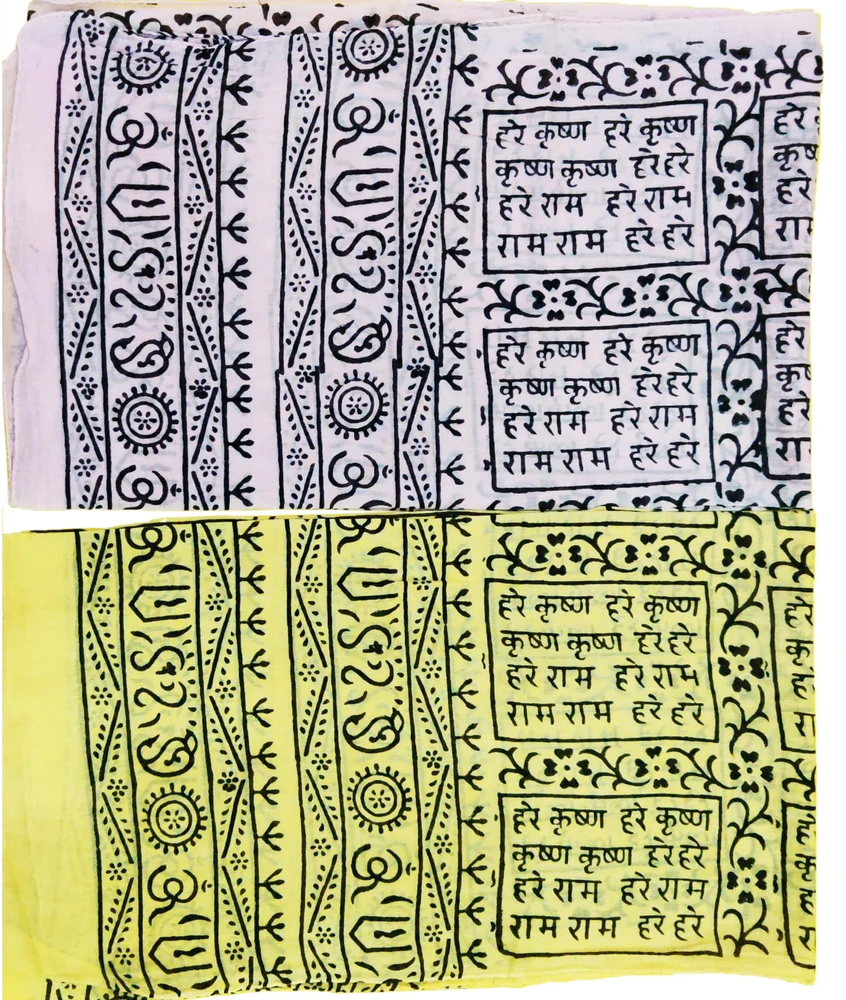 हरे कृष्ण हरे कृष्ण
कृष्ण कृष्ण हरे हरे
हरे राम हरे राम
राम राम हरे हरे
हरे कृष्ण हरे कृष्ण
कृष्ण कृष्ण हरे हरे
हरे राम हरे राम
राम राम हरे हरे
हरे
कृष्ण
हरे
राम
हरे
कृष्ण
हरे
राम
हरे कृष्ण हरे कृष्ण
कृष्ण कृष्ण हरे हरे
हरे राम हरे राम
राम राम हरे हरे
हरे कृष्ण हरे कृष्ण
कृष्ण कृष्ण हरे हरे
हरे राम हरे राम
राम राम हरे हरे